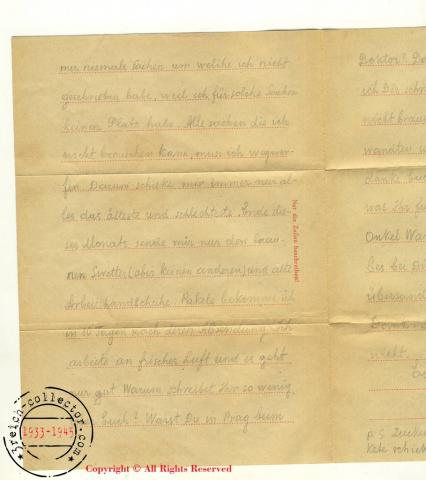 mir niemals Sachen um welche ich nicht
geschrieben habe, weil ich für solche Sachen
keinen Platz habe. Alle sachen die ich
nicht brauchen kann, muss ich wegwer-
fen. Darum schicke mir immer nur al-
les das älteste und schlechteste. Ende die-
ses Monats sende mir nur den brau-
nen Swetter (aber keinen anderen) und alte
Arbeitshandschuhe. Pakete bekomme ich
in 10 Tagen nach deren Absendung. Ich
arbeite an frischer Luft und es geht
mir gut. Warum schreibet Ihr so wenig
Euch? Warst Du in Prag beim
Nur die Zeilen beschreiben!
Doktor?
ich Dir
nicht brau
wandten
danke
was Ihr
Onkel
bei
übersend
nicht.
P.S. Zucker
kete
3reich-collector.com
1933-1945
Copyright © All Rights Reserved